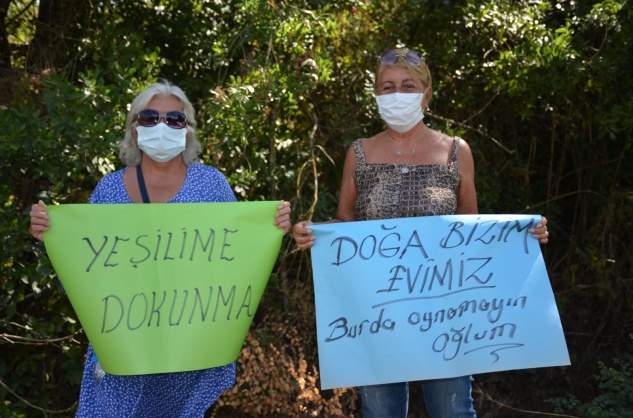 YEŞİLİME
DOKUNMA
DOĞA BİZİM
EVİMİZ
Burda oynamayın
Oğlum